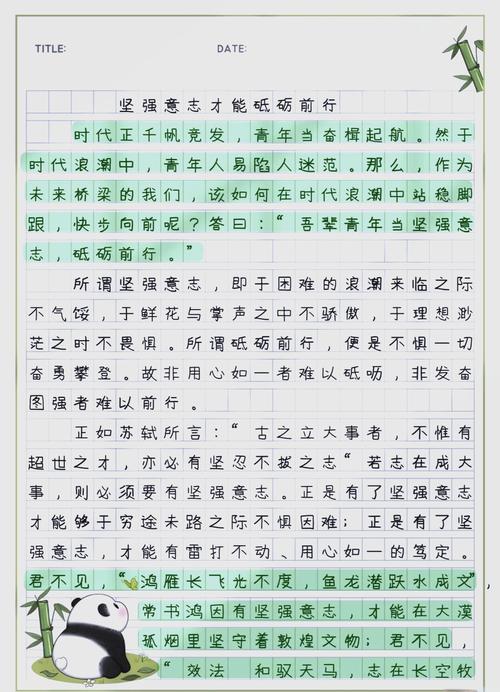 TITLE:
DATE:
坚强意志才能砥砺前行
时代正千帆竞发，青年当奋楫起航。然于
时代浪潮中，青年人易陷人迷范。那么，作为
未来桥梁的我们，该如何在时代浪潮中站稳脚
跟，快步向前呢？答曰：“吾辈青年当坚强意
志，砥砺前行。”
所谓坚强意志，即于困难的浪潮来临之际
不气馁，于鲜花与掌声之中不骄傲，于理想渺
茫之时不畏惧。所谓砥砺前行，便是不惧一切
奋勇攀登。故非用心如一者难以砥砺，非发奋
图强者难以前行。
正如苏轼所言：“古之立大事者，不惟有
超世之才，亦必有坚忍不拔之志“若志在成大
事，则必须要有坚强意志。正是有了坚强意志
才能够于穷途未路之际不惧因难；正是有了坚
强意志，才能有雷打不动、用心如一的笃定。
君不见，“鸿雁长飞光不度，鱼龙潜跃水成文”，
常书鸿因有坚强意志，才能在大漠
孤烟里坚守着敦煌文物；君不见，
“效法 和驭天马，志在长空牧